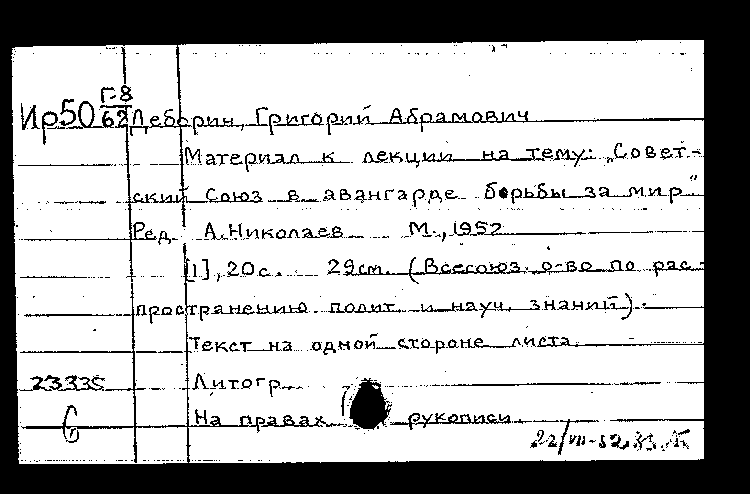 Ир50 Г-8
62
Деборин, Григорий Абрамович
Материал к лекции на тему: „Совет-
ский Союз в авангарде борьбы за мир"
Ред. А.Николаев М., 1952
[1], 20с. 29см. (Всесоюз. о-во по рас-
пространению полит. и науч. знаний).
Текст на одной стороне листа.
23335 Литогр.
На правах рукописи.
22/VII-52